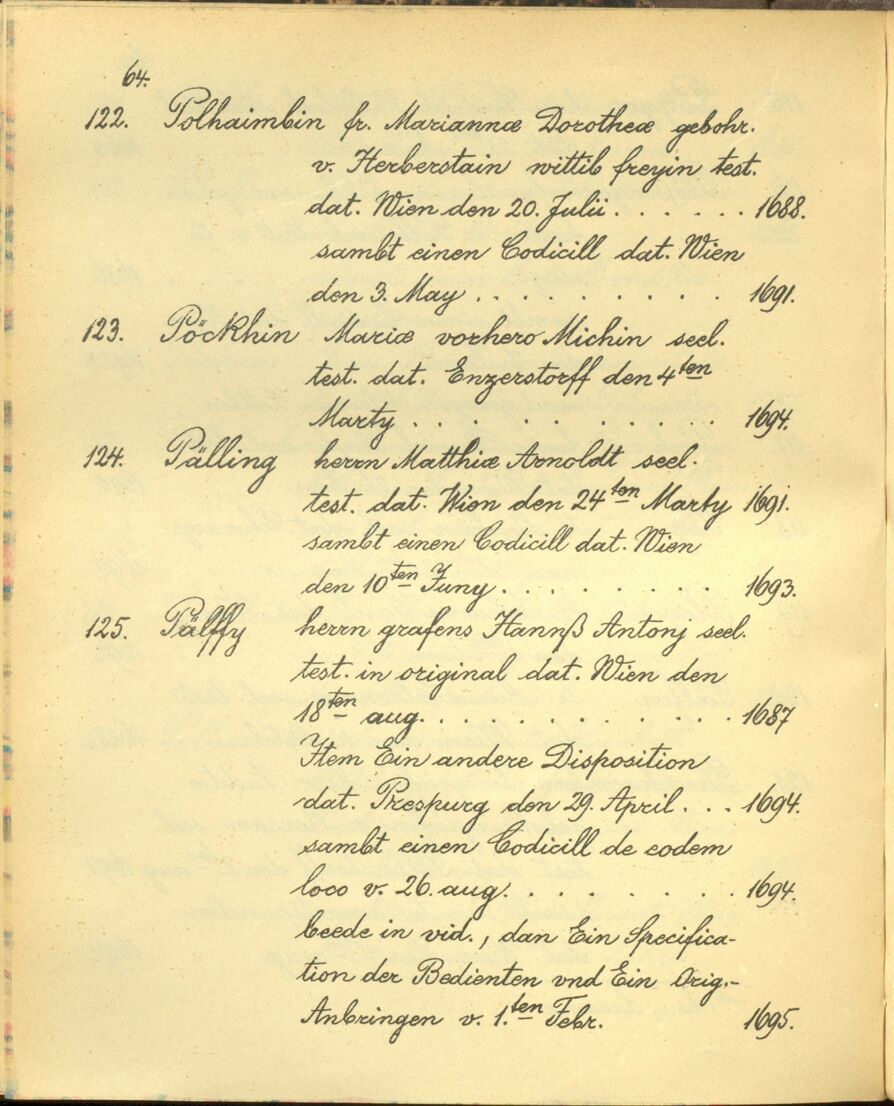 64.
122. Polhaimbin fr. Mariannæ Dorotheæ gebohr.
v. Herberstain wittib freyin test.
dat. Wien den 20. Julii . . . . . . 1688.
sambt einen Codicill dat. Wien
den 3. May . . . . . . . . . 1691.
123. Pöckhin Mariæ vorhero Michin seel.
test. dat. Enzerstorff den 4ten
Marty . . . . . . . . . . . 1694.
124. Pälling herrn Matthiæ Arnoldt seel.
test. dat. Wien den 24ten Marty 1691.
sambt einen Codicill dat. Wien
den 10ten Juny . . . . . . . . 1693.
125. Pälffy herrn grafens Hannß Antonj seel.
test. in original dat. Wien den
18ten aug. . . . . . . . . . . . 1687
Item Ein andere Disposition
dat. Prespurg den 29. April . . . 1694.
sambt einen Codicill de eodem
loco v. 26. aug. . . . . . . . . 1694.
beede in vid., dan Ein Specifica-
tion der Bedienten vnd Ein Orig.-
Anbringen v. 1.ten Febr. 1695.